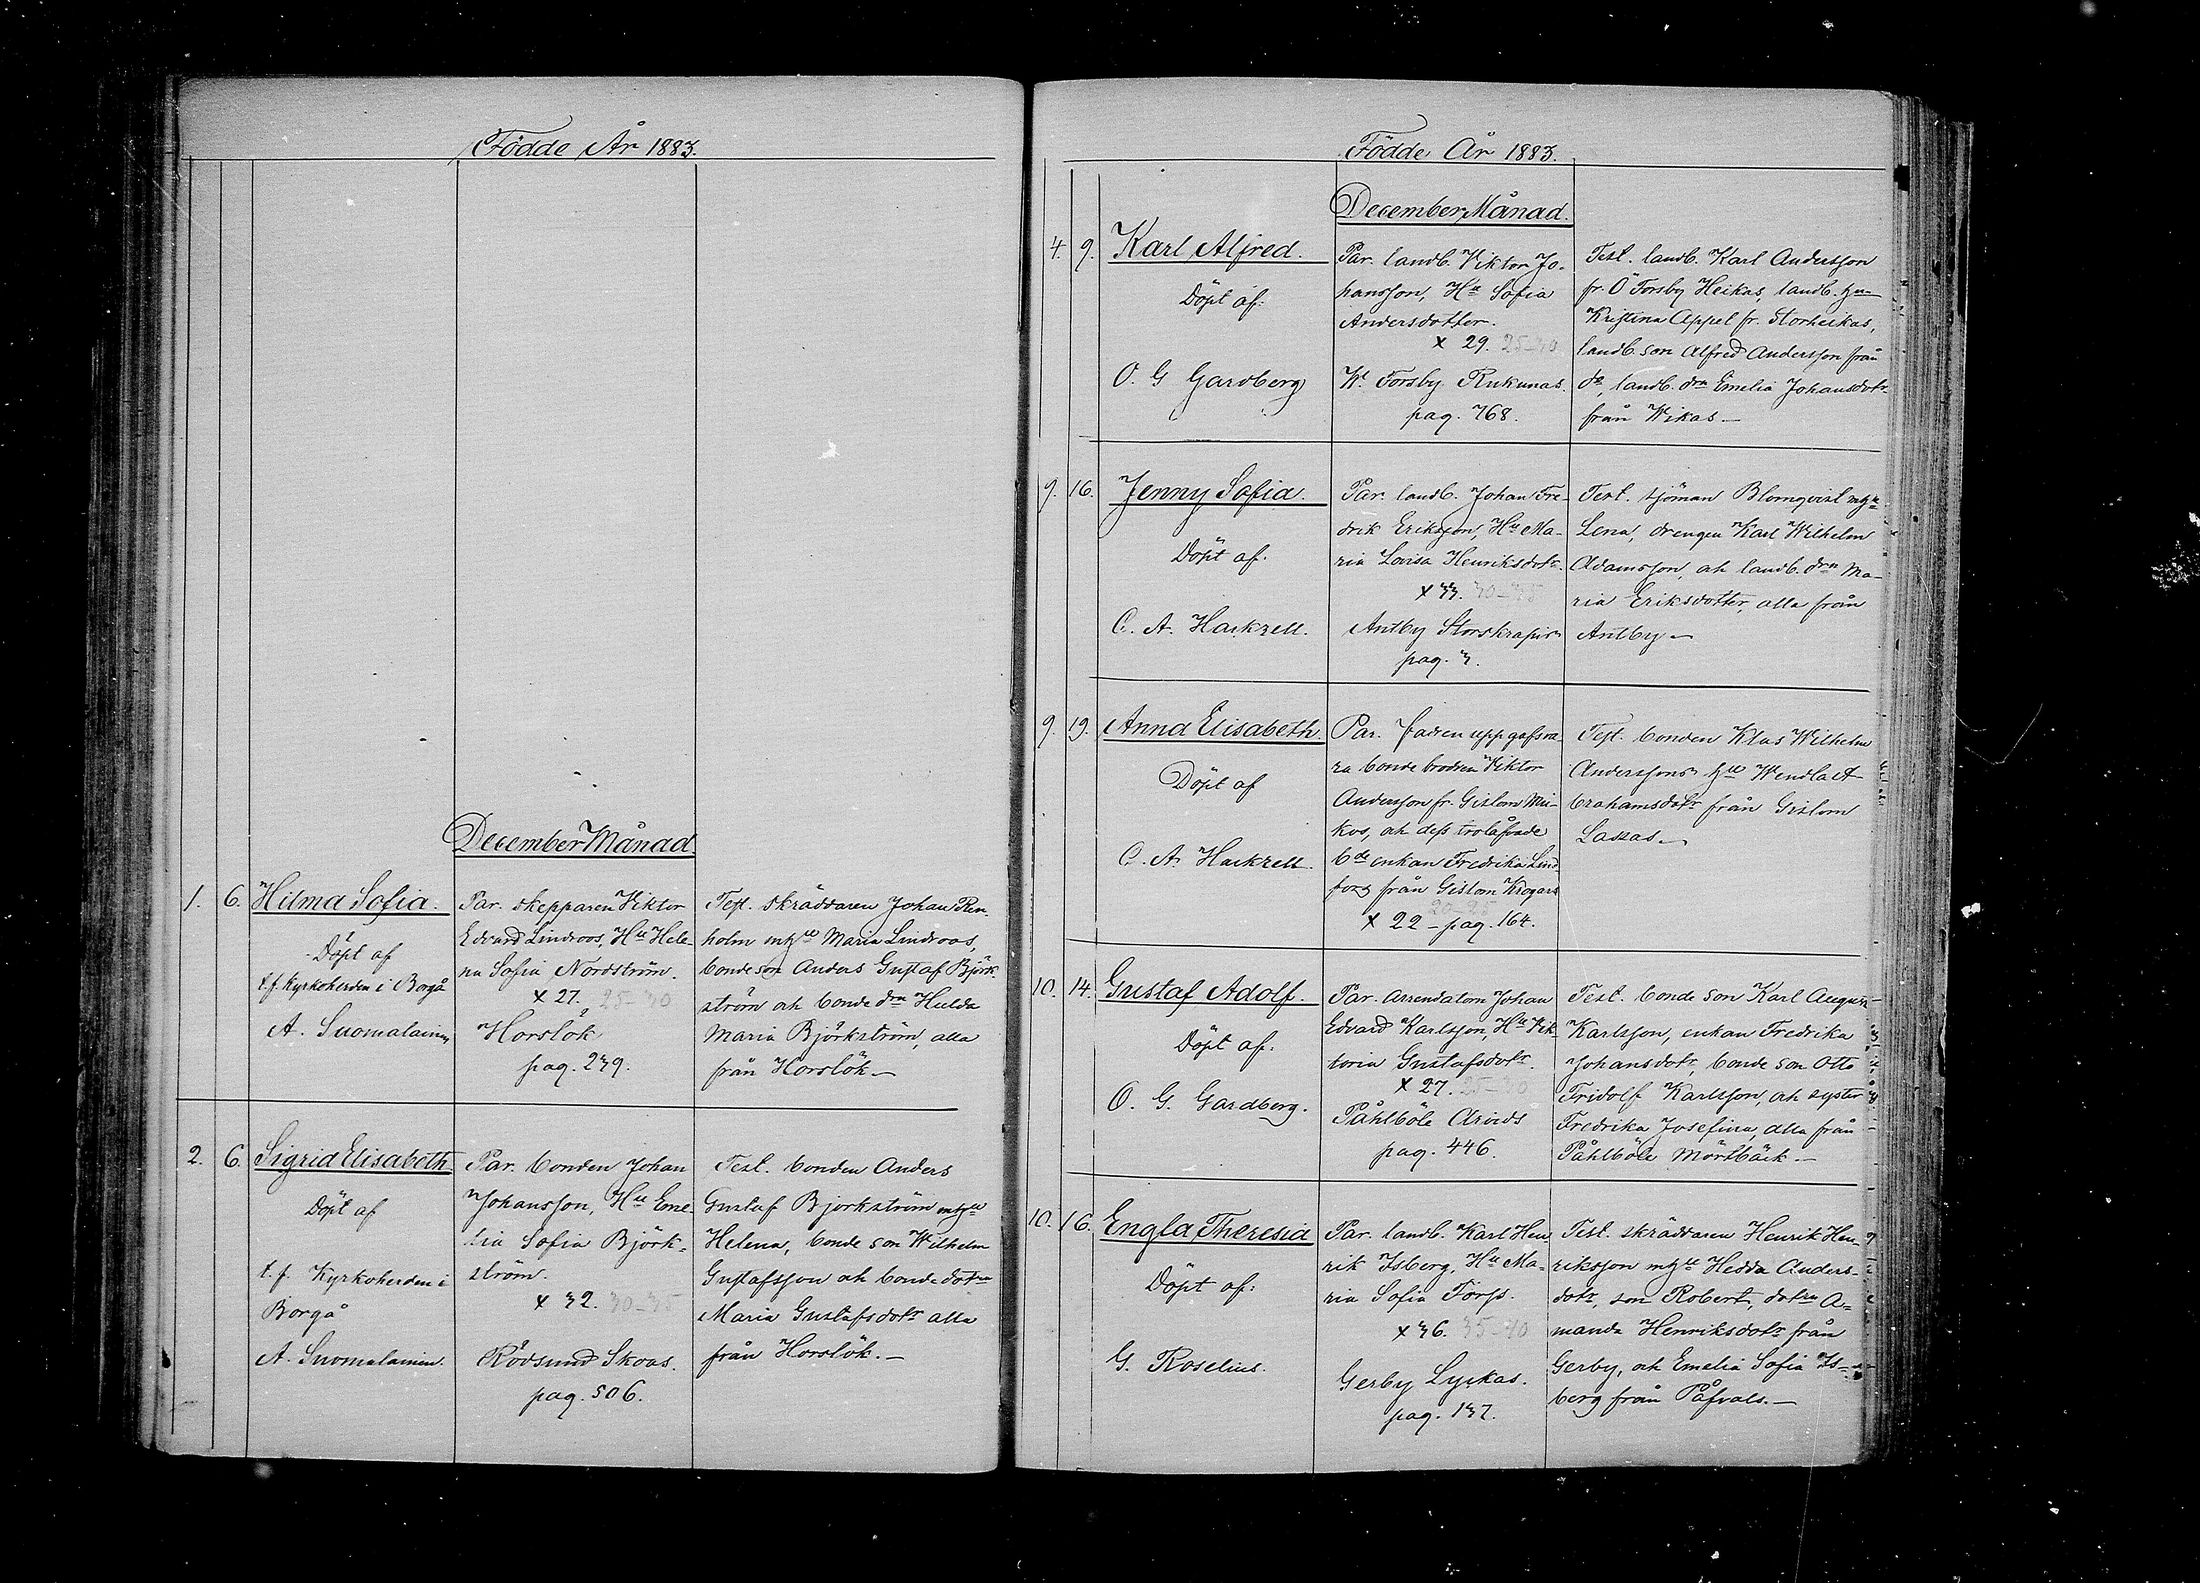 Födde År 1883.
December Månad
1. 6. Hilma Sofia.
Döpt af
t.f. Kyrkoherden i Borgå
A. Suomalainen
Par. skepparen Viktor
Edvard Lindroos, Hu Hele-
na Sofia Nordström.
x 27. 25-30
Horslök
pag. 239.
Test. skräddaren Johan Ren-
holm m hu Maria Lindroos,
bondeson Anders Gustaf Björk-
ström och bonde drn Hulda
Maria Björkström, alla
från Horslök.—
2. 6. Sigrid Elisabeth
Döpt af
t.f. Kyrkoherden i
Borgå
A. Suomalainen.
Par. bonden Johan
Johansson, Hu Eme-
lia Sofia Björk-
ström.
x 32. 30-35
Rödsund Skoas.
pag. 506.
Test. bonden Anders
Gustaf Björkström m hu
Helena, bonde son Wilhelm
Gustafsson och bonde dotrn
Maria Gustafsdotr alla
från Horslök.—
Födde År 1883.
December Månad.
4. 9. Karl Alfred.
Döpt af.
O. G Gardberg
Par. landb. Viktor Jo-
hansson, Hu Sofia
Andersdotter.
x 29. 25-30
W. Forsby Rukunas.
pag. 768.
Test. landb. Karl Andersson
fr. Ö Forsby Heikas, landb. hun
Kristina Appel fr. Storheikas,
landb. son Alfred Andersson från
do, landb. drn Emelia Johansdotr
från Wikas.—
9. 16. Jenny Sofia.
Döpt af.
C. A. Hackzell.
Par. landb. Johan Fre-
drik Eriksson, Hu Ma-
ria Lovisa Henriksdotr.
x 33. 30-35
Antby Storskrapis
pag. 3.
Test. sjöman Blomqvist m hu
Lena, drengen Karl Wilhelm
Adamsson, och landb. drn Ma-
ria Eriksdotter, alla från
Antby—
9. 19. Anna Elisabeth.
Döpt af
C. A. Hackzell
Par. Fadren uppgafs va-
ra bonde brodren Viktor
Andersson fr. Gislom Mi-
kos, och dess trolåfvade
bde enkan Fredrika Lind-
fors från Gislom Krogars
20-25
x 22 - pag. 164.
Test. bonden Klas Wilhelm
Anderssons hu Wendla A-
brahamsdotr från Gislom
Lassas.—
10. 14. Gustaf Adolf.
Döpt af.
O. G. Gardberg.
Par. arrendatorn Johan
Edvard Karlsson, Hu Vik-
toria Gustafsdotr.
x 27. 25-30
Påhlböle Arvids
pag. 446.
Test. bonde son Karl August
Karlsson, enkan Fredrika
Johansdotr, bonde son Otto
Fridolf Karlsson, och syster
Fredrika Josefina, alla från
Påhlböle Mörtbäck.—
10. 16. Engla Theresia
Döpt af.
G. Roselius.
Par. landb. Karl Hen
rik Isberg, Hu Ma-
ria Sofia Forss.
x 36. 35-40
Gerby Lyckas.
pag. 137.
Test. skräddaren Henrik Hen-
riksson m hu Hedda Anders-
dotr, son Robert, dotrn A-
manda Henriksdotr från
Gerby, och Emelia Sofia Is-
berg från Påfvals.—